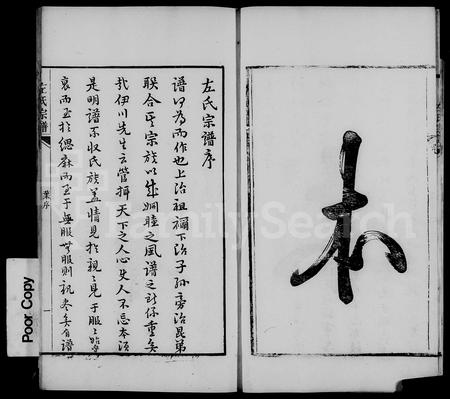 本
左氏宗譜序
譜何為而作也上治祖禰下治子孫旁治昆弟
聯合其宗族以成婣睦之風譜之所係重矣
哉伊川先生云管攝天下之人心使人不忘本須
是明譜系收氏族蓋情見於親親見于服服始於
衰而至於緦麻而至于無服無服則親盡矣有譜
左氏宗譜
葉序
一
FamilySearch
Poor Copy